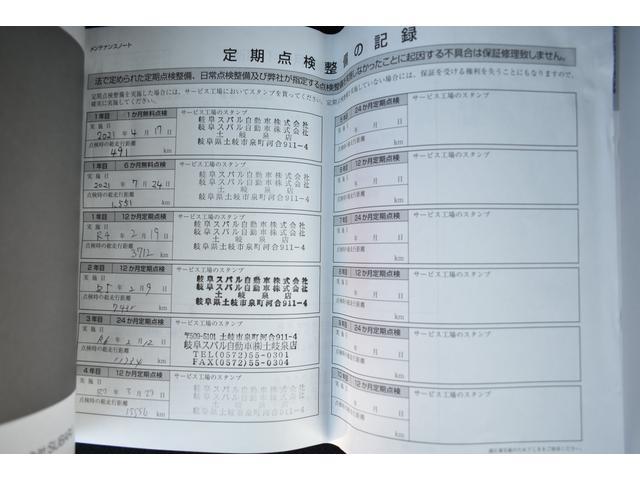 メンテナンスノート
定期点検整備の記録
法で定められた定期点検整備、日常点検整備及び弊社が指定する点検整備を実施しなかったことに起因する不具合は保証修理致しません。
定期点検整備を実施した場合には、サービス工場においてスタンプを貰ってください。
確実に実施してください。
1年目 1か月無料点検
サービス工場のスタンプ
実施日
2021年4月17日
点検時の総走行距離
491 km
岐阜スバル自動車株式会社
岐阜スバル自動車株式会社
土岐泉店
岐阜県土岐市泉町河合911-4
1年目 6か月無料点検
サービス工場のスタンプ
実施日
2021年7月24日
点検時の総走行距離
1,551 km
岐阜スバル自動車株式会社
岐阜スバル自動車株式会社
土岐泉店
岐阜県土岐市泉町河合911-4
1年目 12か月定期点検
サービス工場のスタンプ
実施日
R4年2月19日
点検時の総走行距離
3712 km
岐阜スバル自動車株式会社
岐阜スバル自動車株式会社
土岐泉店
岐阜県土岐市泉町河合911-4
2年目 12か月定期点検
サービス工場のスタンプ
実施日
R5年2月9日
点検時の総走行距離
km
岐阜スバル自動車株式会社
岐阜スバル自動車株式会社
土岐泉店
岐阜県土岐市泉町河合911-4
3年目 24か月定期点検
サービス工場のスタンプ
実施日
R6年2月12日
点検時の総走行距離
km
〒509-5101 土岐市泉町河合911-4
岐阜スバル自動車㈱土岐泉店
TEL(0572)55-0301
FAX(0572)55-0304
4年目 12か月定期点検
サービス工場のスタンプ
実施日
点検時の総走行距離
15556 km
岐阜スバル自動車株式会社
岐阜スバル自動車株式会社
土岐泉店
岐阜県土岐市泉町河合911-4
5年目 24か月定期点検
サービス工場のスタンプ
年 月 日
km
6年目 12か月定期点検
サービス工場のスタンプ
年 月 日
点検時の総走行距離
km
7年目 24か月定期点検
サービス工場のスタンプ
年 月 日
点検時の総走行距離
km
8年目 12か月定期点検
サービス工場のスタンプ
実施日
年 月 日
点検時の総走行距離
km
9年目 24か月定期点検
サービス工場のスタンプ
実施日
年 月 日
点検時の総走行距離
km
10年目 12か月定期点検
サービス工場のスタンプ
実施日
年 月 日
点検時の総走行距離
km
SUBAR